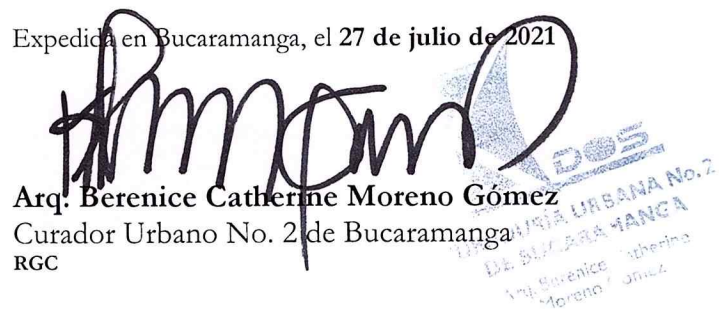 Expedida en Bucaramanga, el 27 de julio de 2021
Arq. Berenice Catherine Moreno Gómez
Curador Urbano No. 2 de Bucaramanga
RGC
DOS
URBANA No. 2
DE BUCARAMANGA
Arq. Berenice Catherine
Moreno Gómez